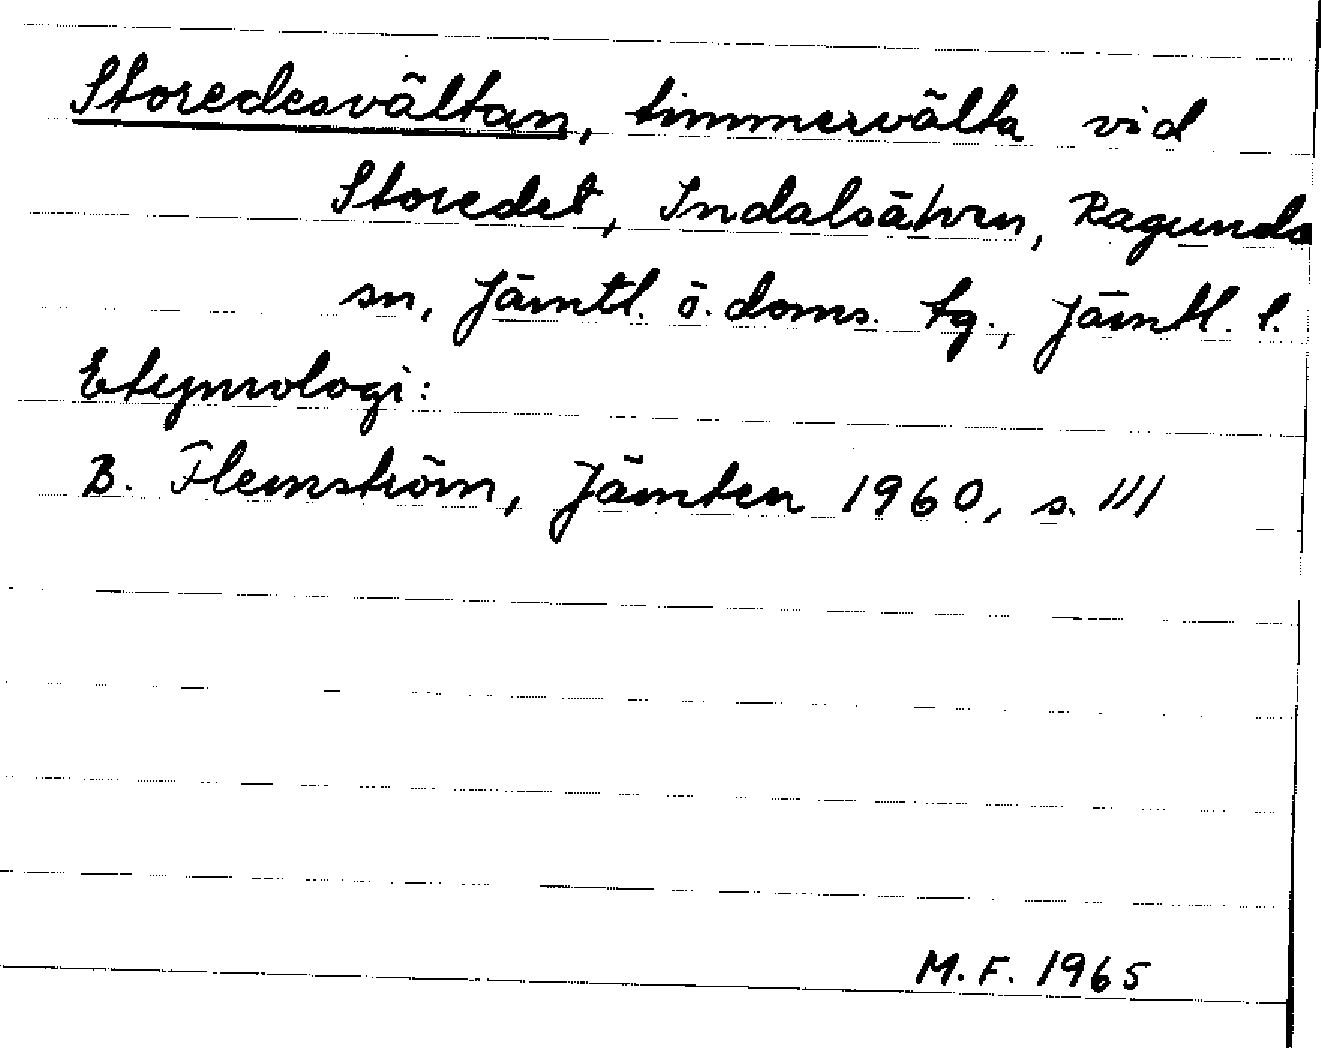 Storedesvältan, timmervälta vid
Storedet, Indalsälven, Ragunda
sn, Jämtl. ö. doms. tg., Jämtl. l.
Etymologi:
B. Flemström, Jämten 1960, s. 111
M.F. 1965